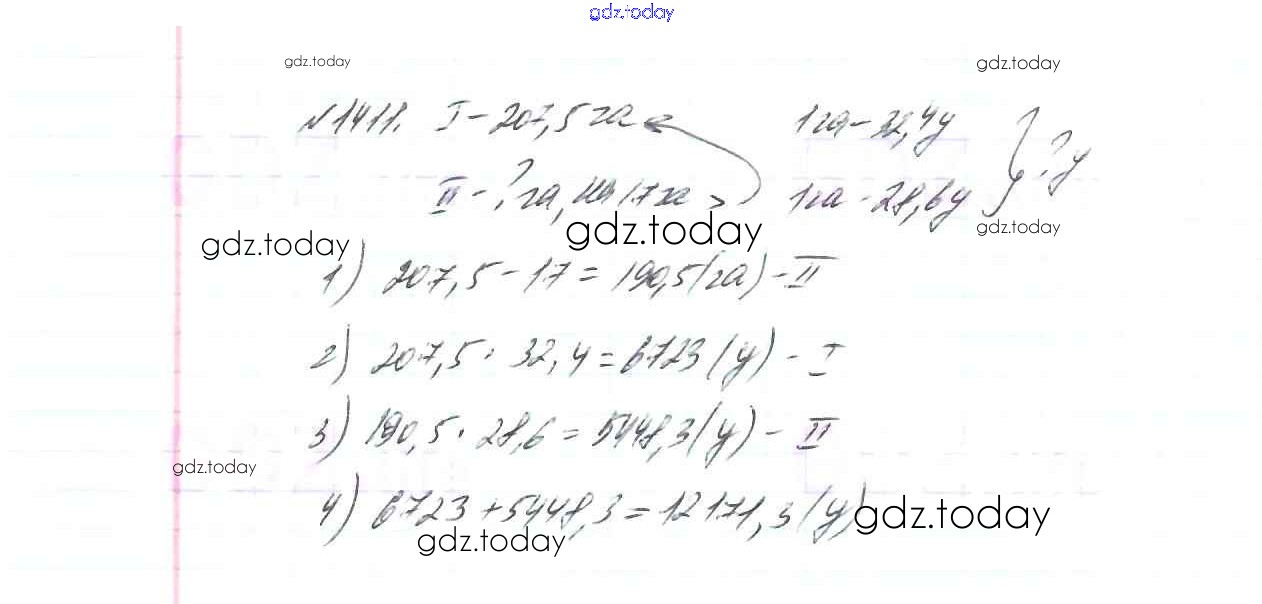 gdz.today
gdz.today gdz.today
№1411. I - 207,5 га 1га - 32,4ц
II - ? га, на 17га > 1га - 28,6ц } ? ц
gdz.today gdz.today gdz.today
1) 207,5 - 17 = 190,5 (га) - II
2) 207,5 · 32,4 = 6723 (ц) - I
3) 190,5 · 28,6 = 5448,3 (ц) - II
gdz.today
4) 6723 + 5448,3 = 12171,3 (ц)
gdz.today gdz.today